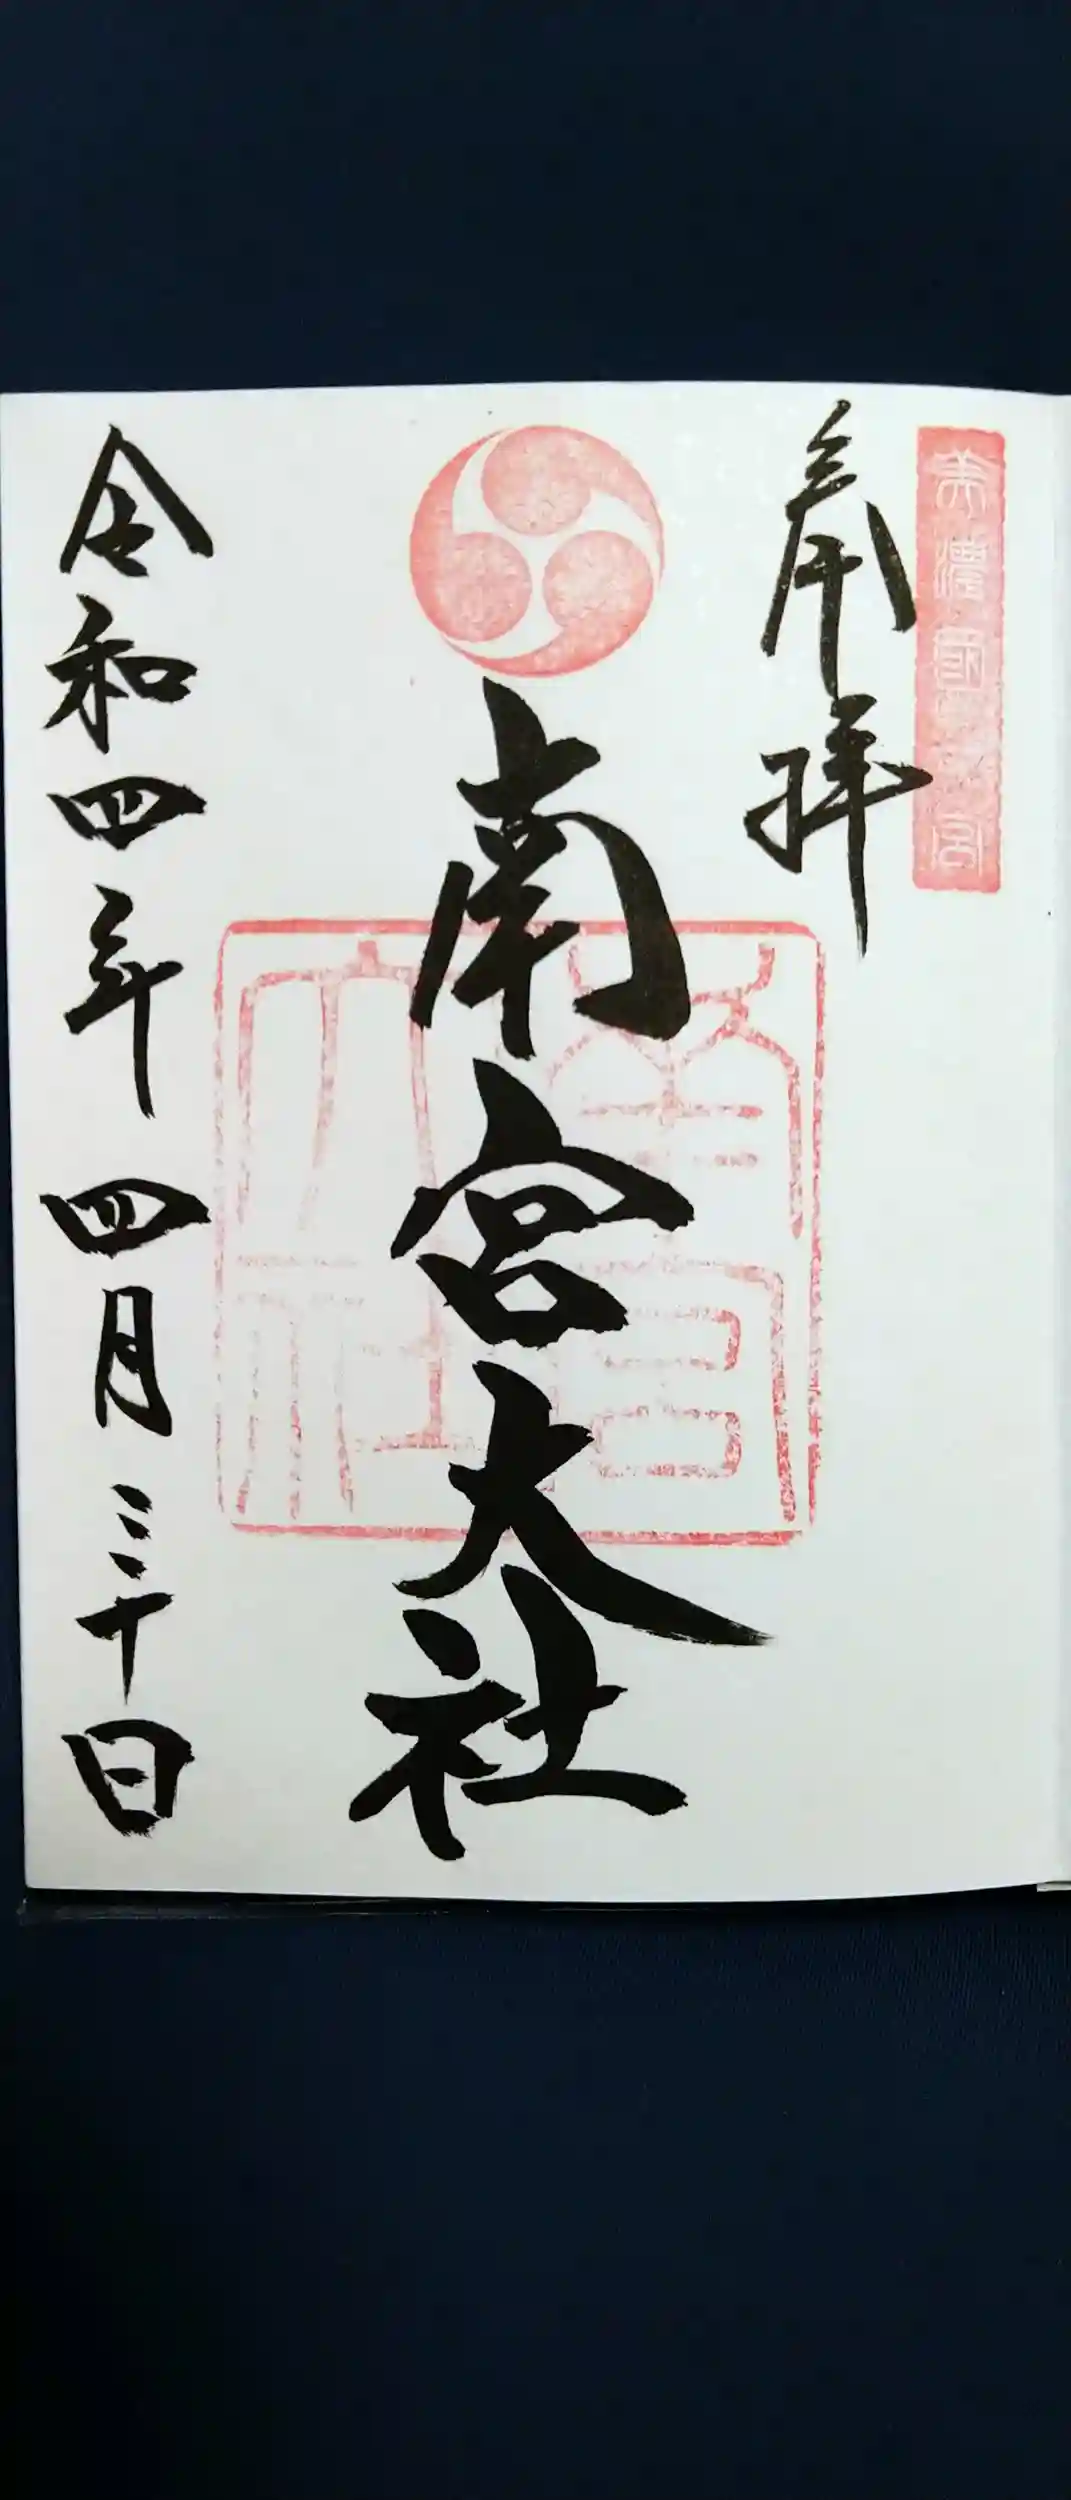 美濃國一宮
奉拝
南宮大社
南宮大社
令和四年 四月三十日